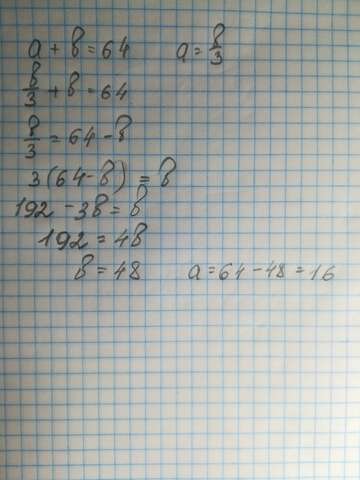 a + b = 64 a = b/3
b/3 + b = 64
b/3 = 64 - b
3(64 - b) = b
192 - 3b = b
192 = 4b
b = 48 a = 64 - 48 = 16